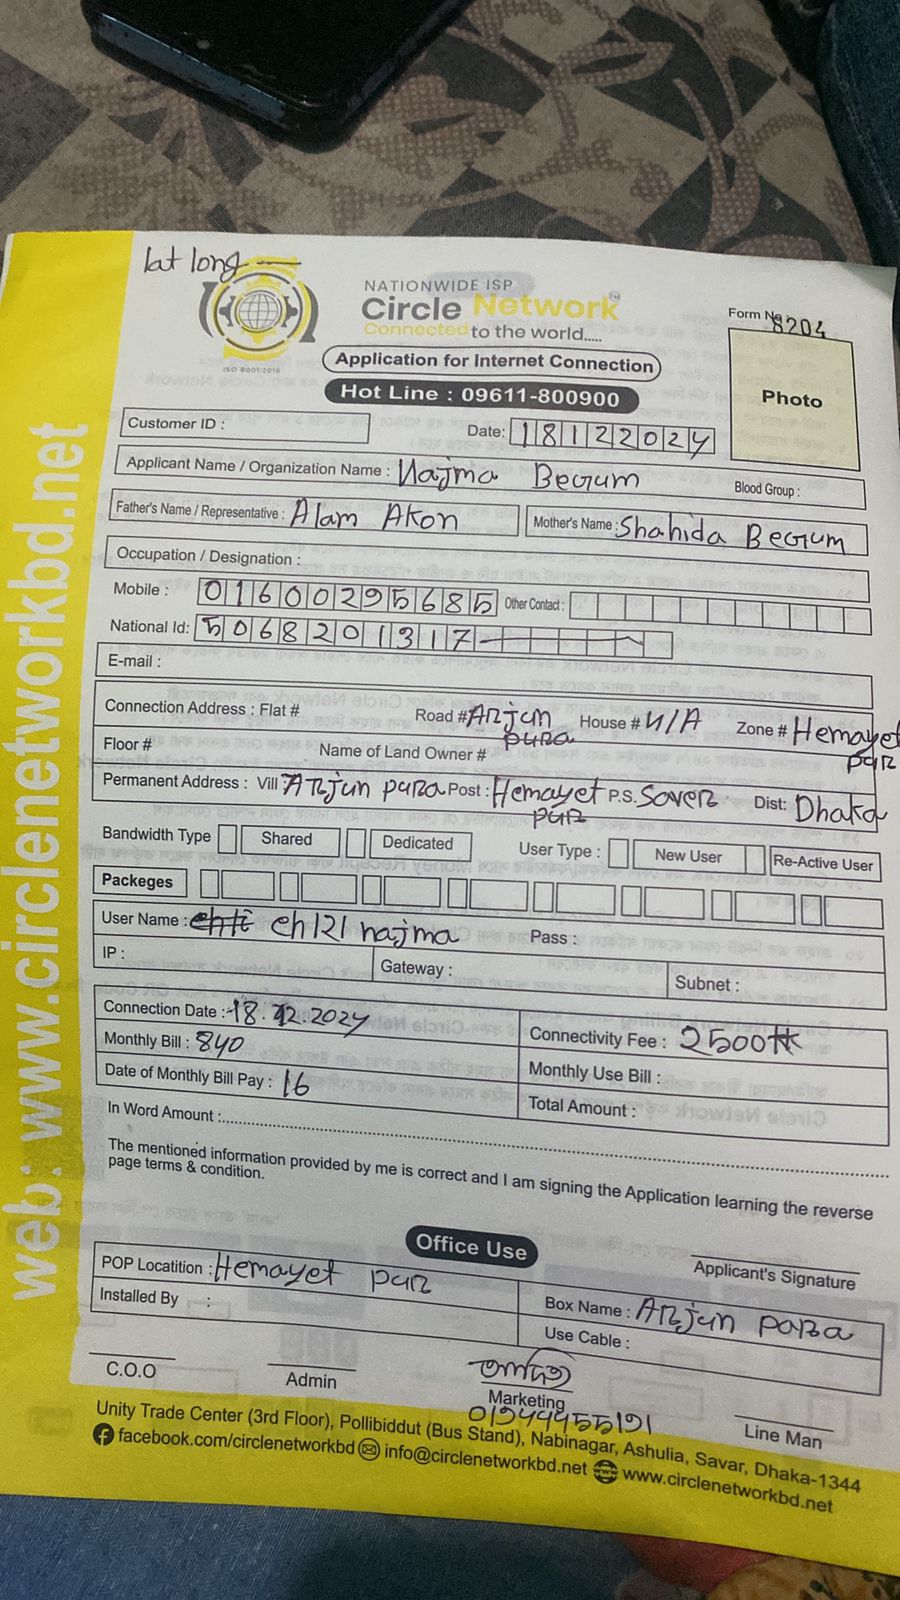 lat long
NATIONWIDE ISP
Circle Network™
Connected to the world.....
ISO 9001:2015
Form No 8204
Application for Internet Connection
Hot Line : 09611-800900
Photo
Customer ID :
Date: 18122024
Applicant Name / Organization Name : Najma Begum Blood Group :
Father's Name / Representative : Alam Akon Mother's Name : Shahida Begum
Occupation / Designation :
Mobile : 01600295685 Other Contact :
National Id: 5068201317
E-mail :
Connection Address : Flat # Road # Arjun para House # N/A Zone # Hemayet pur
Floor # Name of Land Owner #
Permanent Address : Vill Arjun para Post : Hemayet pur P.S. Saver Dist: Dhaka
Bandwidth Type Shared Dedicated User Type : New User Re-Active User
Packeges
User Name : ch121 najma Pass :
IP : Gateway : Subnet :
Connection Date : 18.12.2024 Connectivity Fee : 2500tk
Monthly Bill : 840 Monthly Use Bill :
Date of Monthly Bill Pay : 16 Total Amount :
In Word Amount :
The mentioned information provided by me is correct and I am signing the Application learning the reverse
page terms & condition.
Office Use
Applicant's Signature
POP Locatition : Hemayet pur Box Name : Arjun para
Installed By : Use Cable :
C.O.O Admin Marketing Line Man
Unity Trade Center (3rd Floor), Pollibiddut (Bus Stand), Nabinagar, Ashulia, Savar, Dhaka-1344
facebook.com/circlenetworkbd info@circlenetworkbd.net www.circlenetworkbd.net
web: www.circlenetworkbd.net